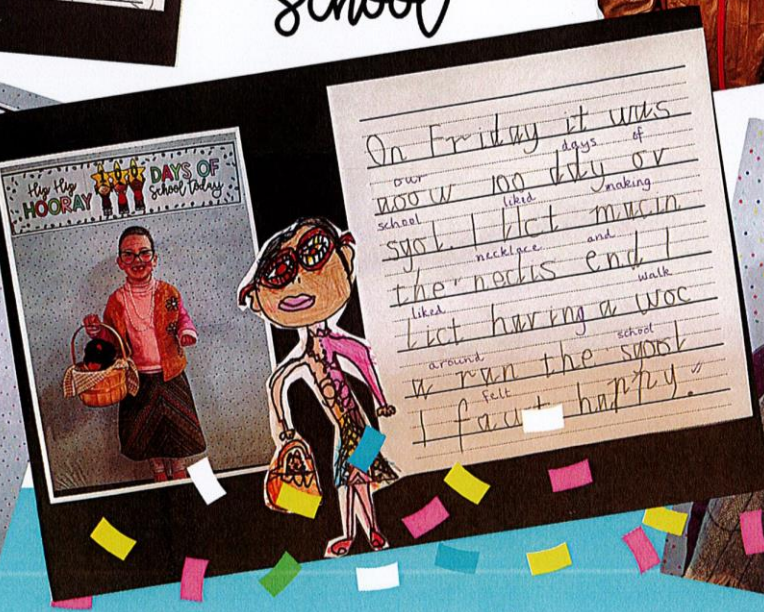 school
Hip Hip
HOORAY
DAYS OF
school today
On Friday it was
days of
uoow 100 day ov
our making
school liked
sgol. I lict mucin
necklace and
the neclis end I
liked walk
lict having a woc
around school
a ran the sgool
felt
I faut happy.